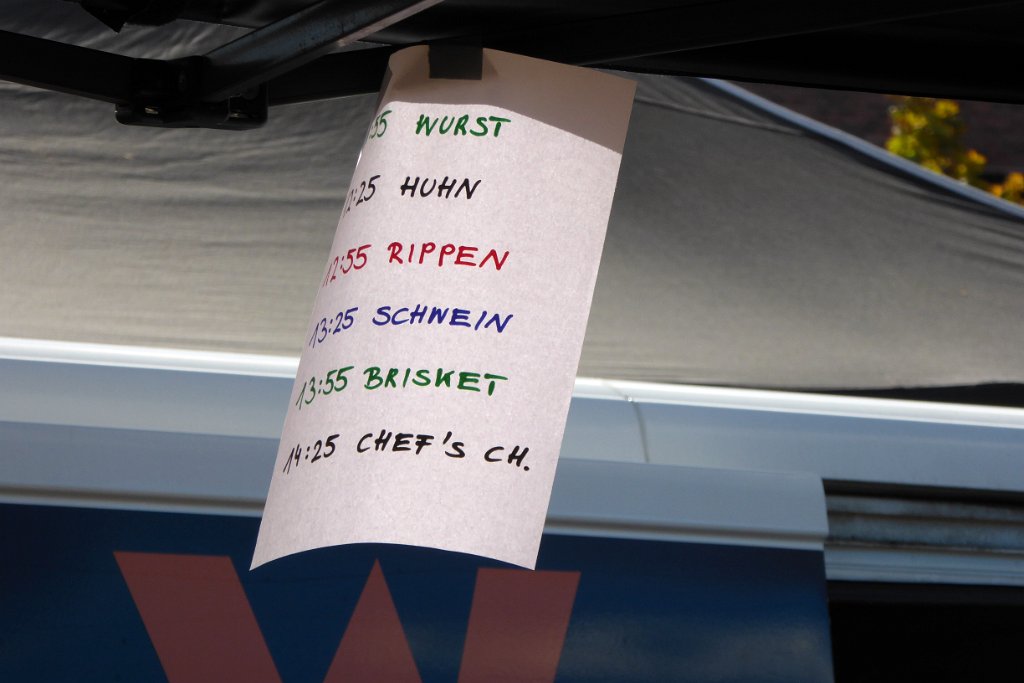 55 WURST
2:25 HUHN
12:55 RIPPEN
13:25 SCHWEIN
13:55 BRISKET
14:25 CHEF's CH.
W